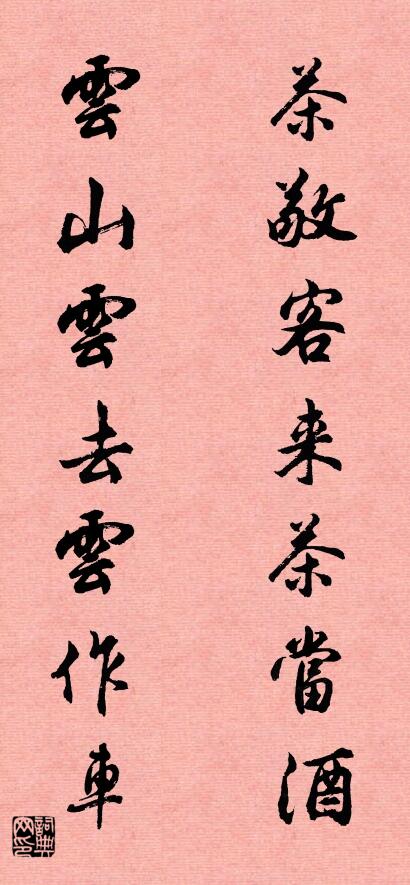 茶敬客来茶當酒
雲山雲去雲作車
詞典網印